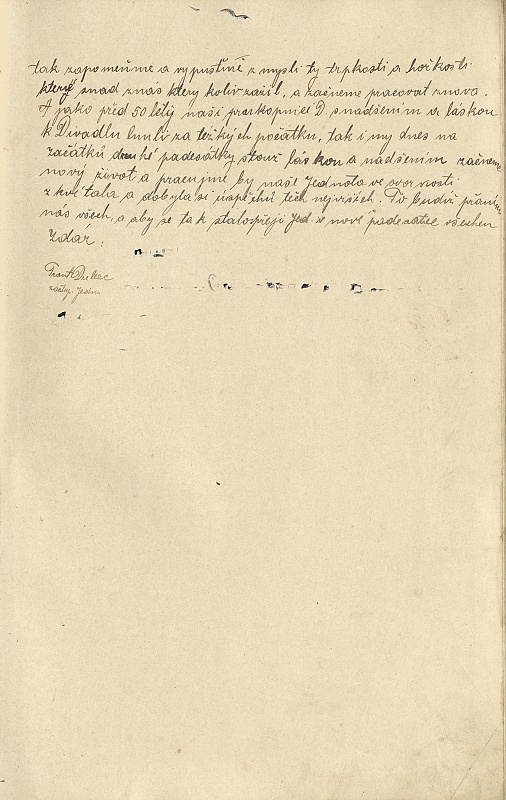 tak zapomeňme a vypusťmě z mysli ty trpkosti a hořkosti
které snad znás který koliv zažil, a začneme pracovat znova.
A jako před 50 léty naši praukopnici D. snadšením a láskou
k Divadlu lnuli za težkých počátku, tak i my dnes na
začátků druhé padesátky stouž láskou a nadšením začneme
nový život a pracujme by naše Jednota ve svornosti
zkvétala a dobyla si úspěchů těch nejvižších. To budiž přáním
nás všech, a aby se tak stalo přeji Jed. v nové padesátce všechen
Zdar.
Frant.
Jedn.